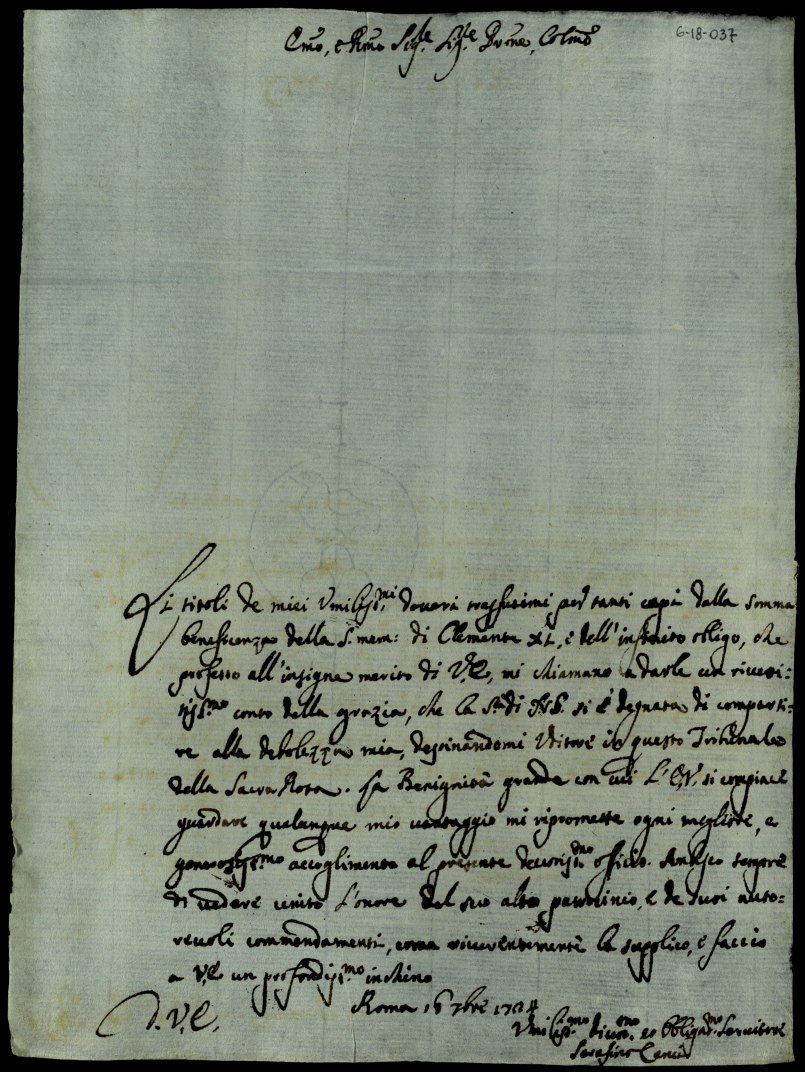 6-18-037
Emo, e Rmo Sigre Sigre Prone Colmo
Li titoli de miei Umilissmi doveri trasfusimi per tanti capi dalla somma
beneficenza della S. mem: di Clemente XI, e dell'infinito obligo, che
professo all'insigne merito di V.E., mi chiamano a darle un riveren-
tissmo conto della grazia, che la Stà di N.S. si è degnata di comparti-
re alla debolezza mia, destinandomi Uditore in questo Tribunale
della Sacra Rota. La Benignità grande con cui L'E.V. si compiace
guardare qualunque mio vantaggio mi ripromette ogni megliore, e
generosissmo accoglimento al presente officio. Ambisco sempre
di vedere unito L'onore del suo alto patrocinio, e de suoi auto-
revoli commendamenti, come riverentemente la supplico, e faccio
a V.E. un profondissmo inchino
Roma 16 7bre 1724
D.V.E.
Umilissmo Divmo ed Obbligmo Servitore
Serafino Cenci